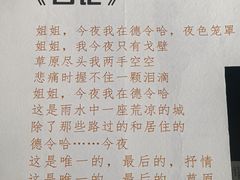 姐姐，今夜我在德令哈，夜色笼罩
姐姐，我今夜只有戈壁
草原尽头我两手空空
悲痛时握不住一颗泪滴
姐姐，今夜我在德令哈
这是雨水中一座荒凉的城
除了那些路过的和居住的
德令哈……今夜
这是唯一的，最后的，抒情
这是唯一的，最后的，草原